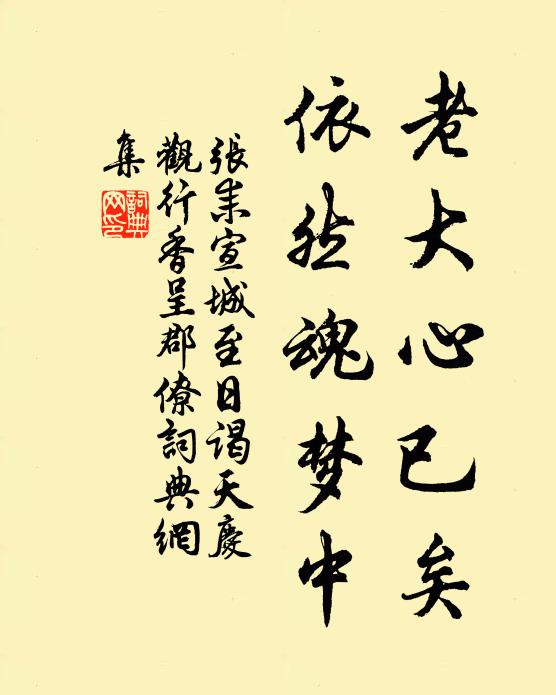 老大心已矣
依然魂梦中
張耒宣城至日谒天慶
觀行香呈郡僚詞典網
集
詞典网印